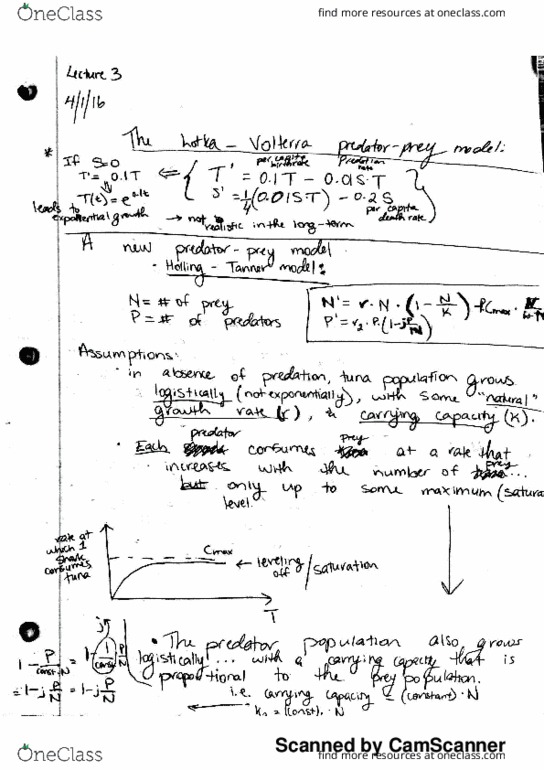 OneClass
find more resources at oneclass.com
Lecture 3
4/1/16
The Lotka - Volterra predator-prey model:
* If S=0
T' = 0.1T
T(t) = e^0.1t
leads to exponential growth
per capita birthrate
Predation rate
⇐ { T' = 0.1T - 0.01S·T
S' = 1/4(0.01S·T) - 0.2S }
per capita death rate
→ not realistic in the long-term
A new predator-prey model
· Holling - Tanner model:
N = # of prey
P = # of predators
N' = r·N·(1 - N/K) - P·Cmax·
P' = r2·P·(1 - jP/N)
Assumptions:
· in absence of predation, tuna population grows
logistically (not exponentially), with some "natural"
growth rate (r), & carrying capacity (K).
predator prey
· Each consumes at a rate that
prey
increases with the number of ...
but only up to some maximum (satura
level.
rate at which 1 shark consumes tuna
Cmax
← leveling off/saturation
T
j
1 - P/const·N = 1 - (1/const) P/N
= 1 - j P/N = 1 - j P/N
· The predator population also grows
logistically... with a carrying capacity that is
proportional to the prey population.
i.e. carrying capacity = (constant)·N
= (const)·N
Scanned by CamScanner
OneClass
find more resources at oneclass.com